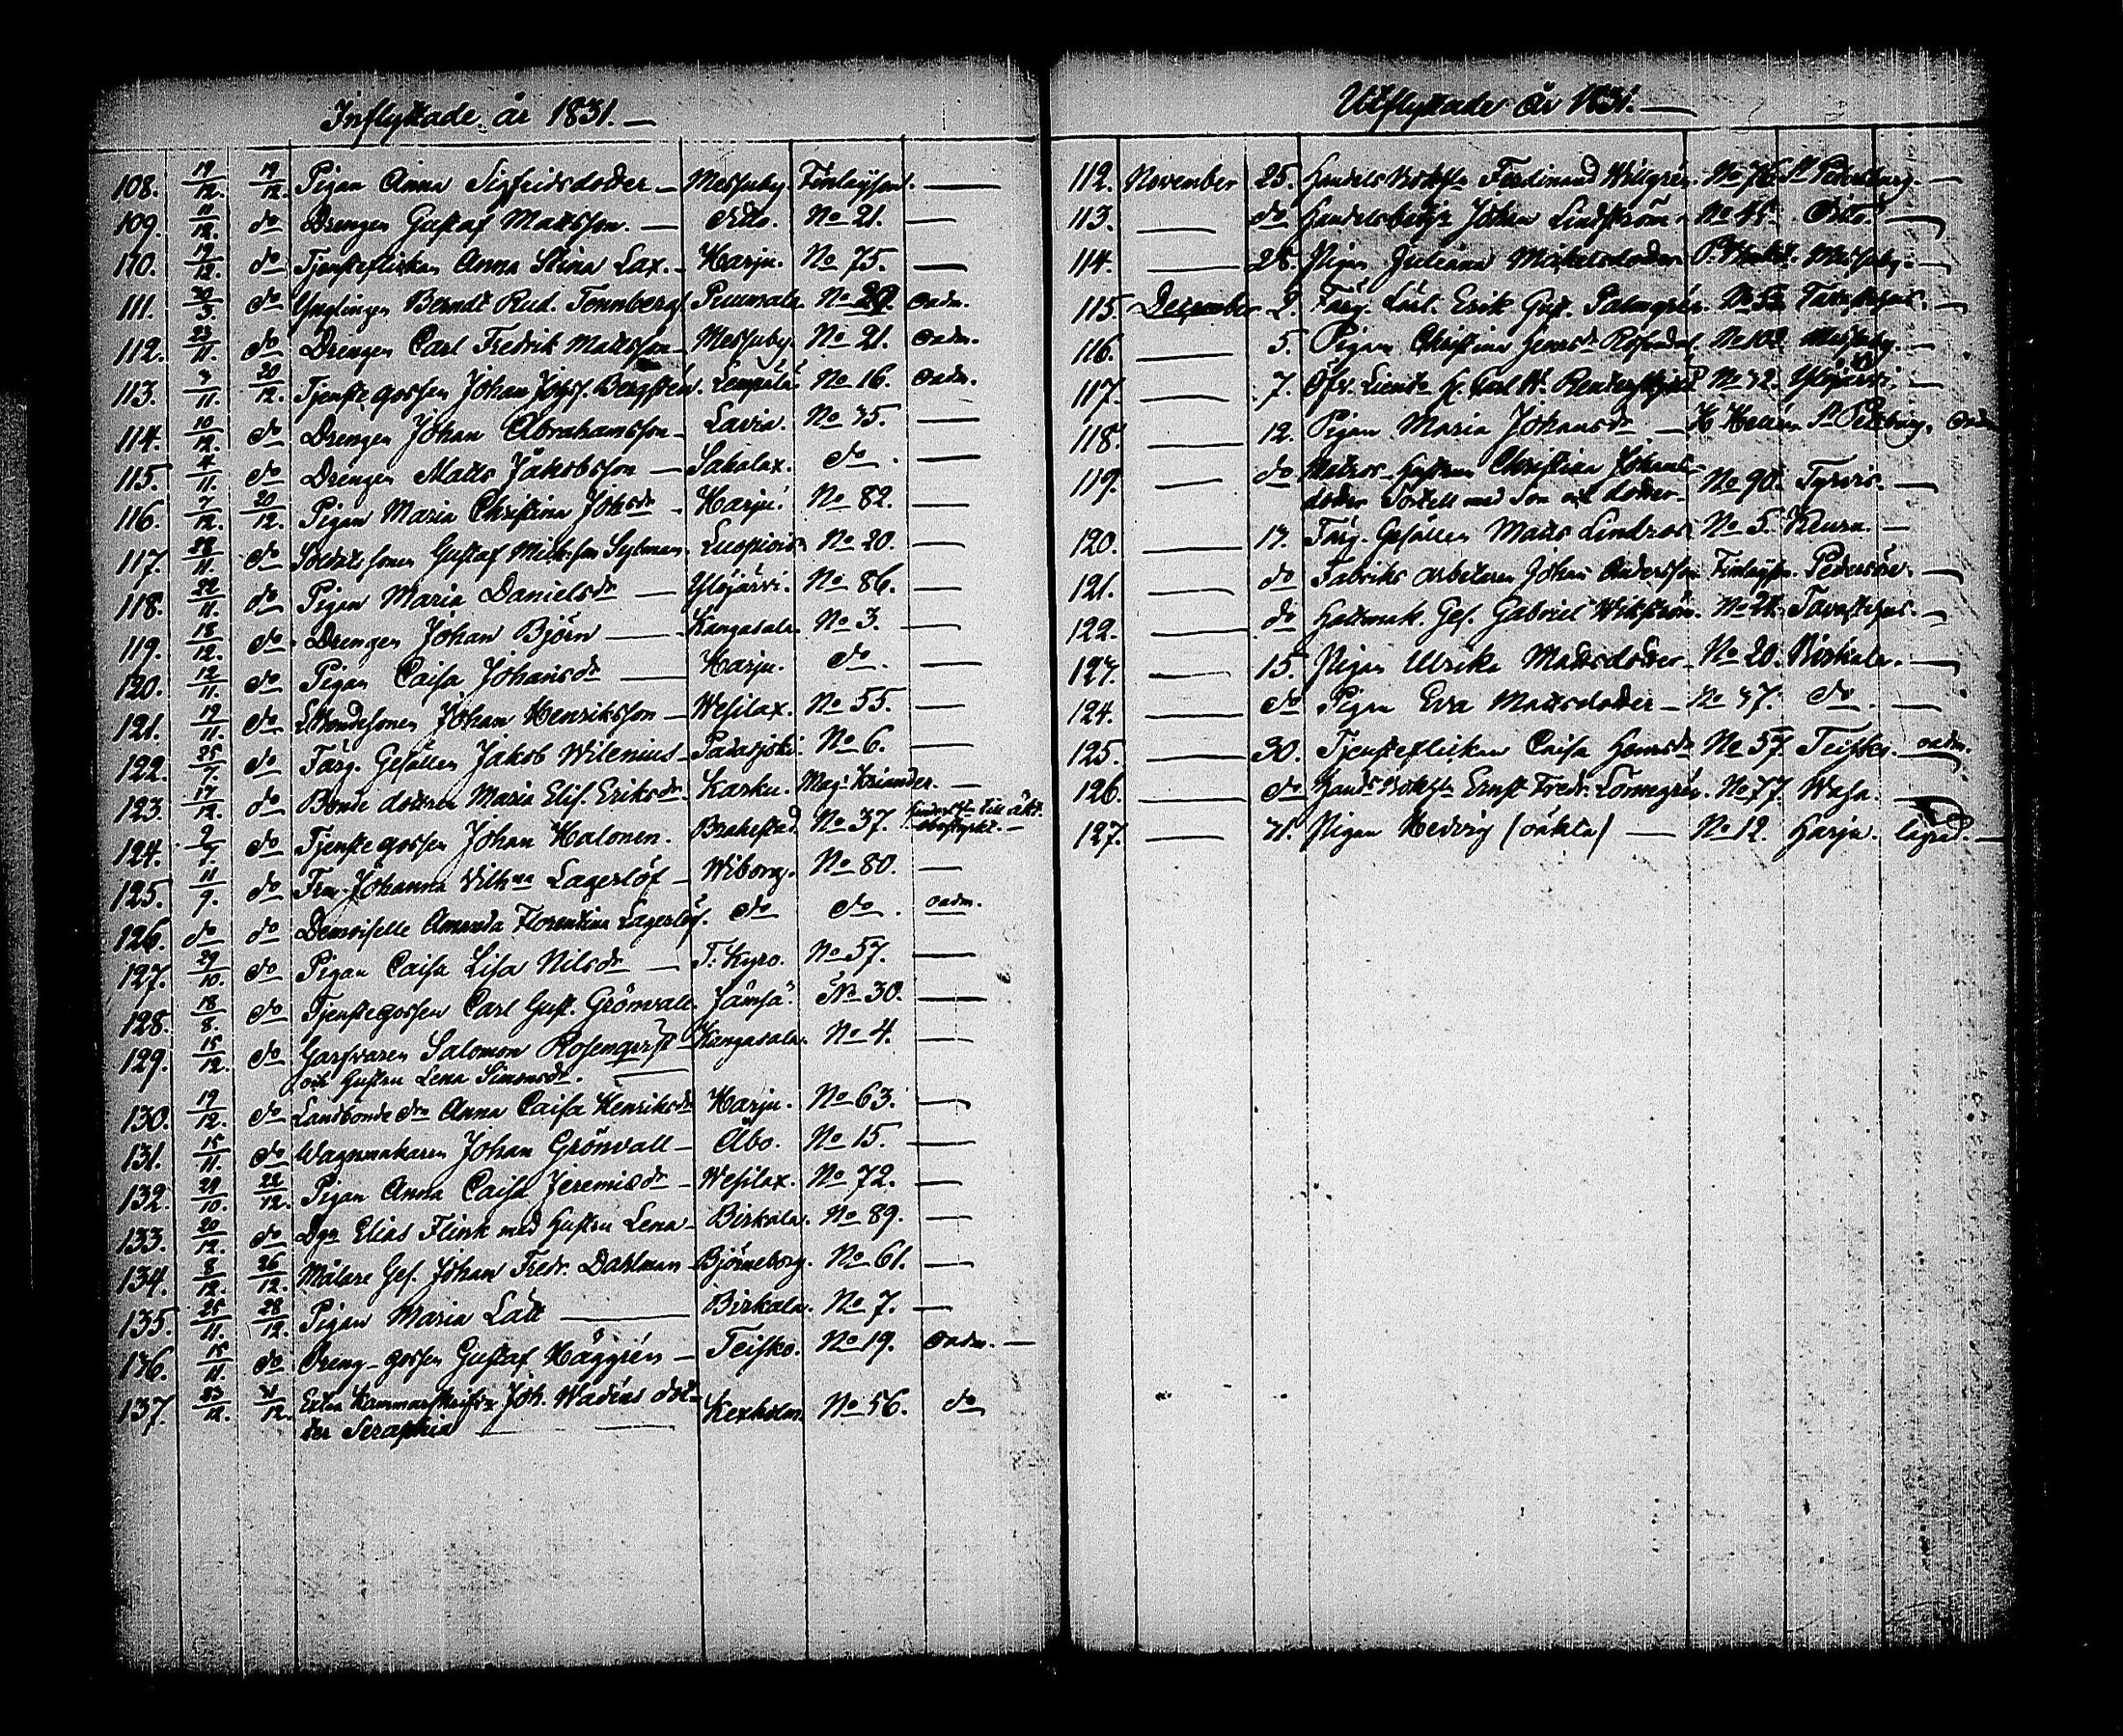 Inflyttade år 1831. —
108. 19/12. 19/12. Pigan Anna Sigfridsdotter — Messuby. Finlayson. —
109. 11/12. do Drengen Gustaf Mattsson. — dito. No 21. —
110. 19/12. do Tjensteflickan Anna Stina Lax. — Harju. No 75. —
111. 30/3. do Ynglingen Berndt Rud. Tennberg Puumala No 29. oadm.
112. 23/11. do Drengen Carl Fredrik Mattsson Messuby. No 21. oadm.
113. 3/11. 20/12. Tjenstegossen Johan Johss. Bergsten. Lempälä No 16. oadm.
114. 10/12. do Drengen Johan Abrahamsson — Lavia. No 35. —
115. 4/11. do Drengen Matts Jakobsson — Sahalax. do. —
116. 7/12. 20/12. Pigan Maria Christina Johsdr — Harju. No 82. —
117. 11. do Soldatsonen Gustaf Mickson Sylman. Luopiois No 20. —
118. 22/11. do Pigan Maria Danielsdr — Ylöjärvi. No 86. —
119. 18/12. do Drengen Johan Björn — Kangasala. No 3. —
120. 12/11. do Pigan Caisa Johansdr — Harju. do. —
121. 19/11. do LBondesonen Johan Henriksson — Wesilax. No 55. —
122. 25/7. do Färg. Gesällen Jakob Wilenius — Padasjoki No 6. —
123. 17/12. do Bonde dottren Maria Elis. Eriksdr. Karku. Mag. Kriander. —
124. 2/7. do Tjenstegossen Johan Halonen. Brahestad No 37. till äkt.
125. 11/9. do Fru Johanna Vilhna Lagerlöf — Wiborg. No 80. —
126. do do Demoiselle Amanda Florentina Lagerlöf. do do. oadm.
127. 29/10. do Pigan Caisa Lisa Nilsdr — T. Kyro. No 57. —
128. 18/8. do Tjenstegossen Carl Gust. Grönvall. Jämsä. No 30. —
129. 15/12. do Garfvaren Salomon Rosenqvist — Kangasala. No 4. —
och Hustru Lena Simonsdr. —
130. 19/12. do Landbonde dr Anna Caisa Henriksdr Harju. No 63. —
131. 15/11. do Wagnmakaren Johan Grönvall — Åbo. No 15. —
132. 29/10. 22/12. Pigan Anna Caisa Jeremidr — Wesilax. No 72. —
133. 20/12. do Dgn Elias Flink med Hustru Lena — Birkala. No 89. —
134. 8/12. 26/12. Målare Ges. Johan Fredr. Dahlman — Björneborg. No 61. —
135. 25/11. 28/12. Pigan Maria Lätt — Birkala. No 7. —
136. 15/11. do Dreng-gossen Gustaf Häggrén — Teisko. No 19. oadm. —
137. 23/12. 31/12. Extra Kammarskrifvr Joh. Wadéns dot-
ter Seraphia — Kexholm. No 56. do
Utflyttade år 1831. —
112. November 25. Handels Bokhr Ferdinand Wilgrén. No 76. St Petersburg. —
113. — do Johan Lindström. No 45. Dito —
114. — 28. Pigan Juliana Mickelsdotter Messuby. —
115. December 2. Färg. Lärl. Erik Gust. Palmgrén. No 5. Tavastehus. —
116. — 5. Pigan Christina Henrsdr Rosendal No 103 Messuby. —
117. — 7. Öfv. Lieut. No 32. Ylöjärvi. —
118. — 12. Pigan Maria Johansdr — St Petersburg. oadm
119. — do Hustrun Christina Johans-
dotter Tortell med Son och dotter — No 90. Tyrvis. —
120. — 13. Färg. Gesällen Matts Lindroos No 5. Keuru. —
121. — do Fabriks arbetaren Johan Andersson Finlayson. Pedersöre. —
122. — do Hattmak. Ges. Gabriel Wikström. No 24. Tavastehus. —
123. — 15. Pigan Ulrika Mattsdotter — No 20. Birkala. —
124. — do Pigan Eva Mattsdotter — No 37. do. —
125. — 30. Tjensteflickan Caisa Henrsdr No 57. Teisko. oadm.
126. — do Hands Bokhr Ernst Fredr. Lönnegrén. No 77. Wasa. —
127. — 31. Pigan Hedvig (oäkta) — No 12. Harju. —